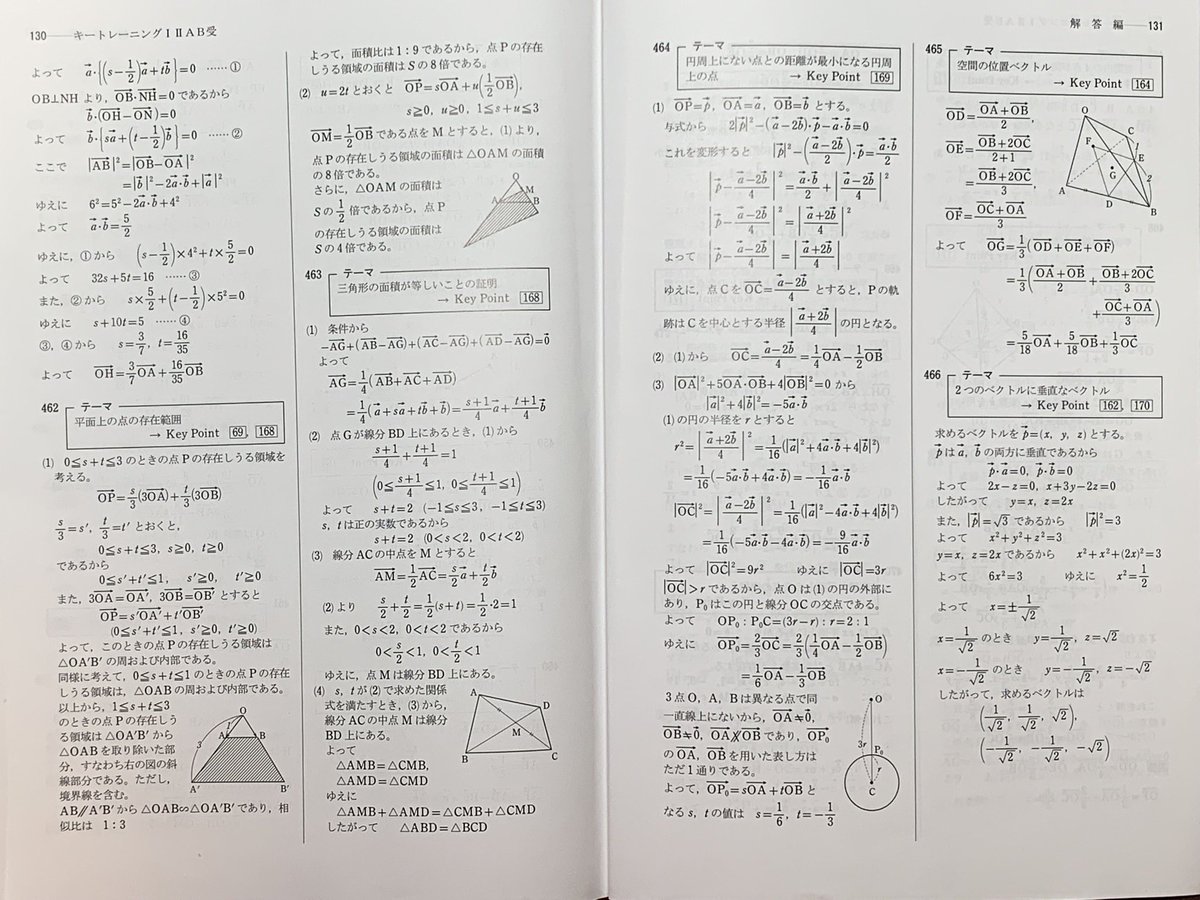 130 キートレーニングⅠⅡAB受
よって a⃗·{(s−1/2)a⃗+tb⃗}=0 ……①
OB⊥NH より，OB⃗·NH⃗=0 であるから
b⃗·(OH⃗−ON⃗)=0
よって b⃗·{sa⃗+(t−1/2)b⃗}=0 ……②
ここで |AB⃗|²=|OB⃗−OA⃗|²
=|b⃗|²−2a⃗·b⃗+|a⃗|²
ゆえに 6²=5²−2a⃗·b⃗+4²
よって a⃗·b⃗=5/2
ゆえに，①から (s−1/2)×4²+t×5/2=0
よって 32s+5t=16 ……③
また，②から s×5/2+(t−1/2)×5²=0
ゆえに s+10t=5 ……④
③，④から s=3/7, t=16/35
よって OH⃗=3/7OA⃗+16/35OB⃗
462 テーマ
平面上の点の存在範囲
→ Key Point 69, 168
(1) 0≦s+t≦3 のときの点Pの存在しうる領域を
考える。
OP⃗=s/3(3OA⃗)+t/3(3OB⃗)
s/3=s′, t/3=t′ とおくと，
0≦s+t≦3, s≧0, t≧0
であるから
0≦s′+t′≦1, s′≧0, t′≧0
また，3OA⃗=OA′⃗, 3OB⃗=OB′⃗ とすると
OP⃗=s′OA′⃗+t′OB′⃗
(0≦s′+t′≦1, s′≧0, t′≧0)
よって，このときの点Pの存在しうる領域は
△OA′B′ の周および内部である。
同様に考えて，0≦s+t≦1 のときの点Pの存在
しうる領域は，△OAB の周および内部である。
以上から，1≦s+t≦3
のときの点Pの存在しう
る領域は △OA′B′ から
△OAB を取り除いた部
分，すなわち右の図の斜
線部分である。ただし，
境界線を含む。
O
1
A
B
3
A′
B′
AB∥A′B′ から △OAB∽△OA′B′ であり，相
似比は 1：3
よって，面積比は 1：9 であるから，点Pの存在
しうる領域の面積は S の8倍である。
(2) u=2t とおくと OP⃗=sOA⃗+u(1/2OB⃗),
s≧0, u≧0, 1≦s+u≦3
OM⃗=1/2OB⃗ である点をMとすると，(1)より，
点Pの存在しうる領域の面積は △OAM の面積
の8倍である。
さらに，△OAM の面積は
S の 1/2 倍であるから，点P
の存在しうる領域の面積は
S の4倍である。
O
M
A
B
463 テーマ
三角形の面積が等しいことの証明
→ Key Point 168
(1) 条件から
−AG⃗+(AB⃗−AG⃗)+(AC⃗−AG⃗)+(AD⃗−AG⃗)=0⃗
よって
AG⃗=1/4(AB⃗+AC⃗+AD⃗)
=1/4(a⃗+sa⃗+tb⃗+b⃗)=(s+1)/4 a⃗+(t+1)/4 b⃗
(2) 点Gが線分BD上にあるとき，(1)から
(s+1)/4+(t+1)/4=1
(0≦(s+1)/4≦1, 0≦(t+1)/4≦1)
よって s+t=2 (−1≦s≦3, −1≦t≦3)
s, t は正の実数であるから
s+t=2 (0<s<2, 0<t<2)
(3) 線分ACの中点をMとすると
AM⃗=1/2AC⃗=s/2 a⃗+t/2 b⃗
(2)より s/2+t/2=1/2(s+t)=1/2·2=1
また，0<s<2, 0<t<2 であるから
0<s/2<1, 0<t/2<1
ゆえに，点Mは線分BD上にある。
(4) s, t が(2)で求めた関係
式を満たすとき，(3)から，
線分ACの中点Mは線分
BD上にある。
よって
△AMB=△CMB,
△AMD=△CMD
A
D
M
B
C
ゆえに
△AMB+△AMD=△CMB+△CMD
したがって △ABD=△BCD
解答編 131
464 テーマ
円周上にない点との距離が最小になる円周
上の点 → Key Point 169
(1) OP⃗=p⃗, OA⃗=a⃗, OB⃗=b⃗ とする。
与式から 2|p⃗|²−(a⃗−2b⃗)·p⃗−a⃗·b⃗=0
これを変形すると |p⃗|²−((a⃗−2b⃗)/2)·p⃗=(a⃗·b⃗)/2
|p⃗−(a⃗−2b⃗)/4|²=(a⃗·b⃗)/2+|(a⃗−2b⃗)/4|²
|p⃗−(a⃗−2b⃗)/4|²=|(a⃗+2b⃗)/4|²
よって |p⃗−(a⃗−2b⃗)/4|=|(a⃗+2b⃗)/4|
ゆえに，点Cを OC⃗=(a⃗−2b⃗)/4 とすると，Pの軌
跡はCを中心とする半径 |(a⃗+2b⃗)/4| の円となる。
(2) (1)から OC⃗=(a⃗−2b⃗)/4=1/4OA⃗−1/2OB⃗
(3) |OA⃗|²+5OA⃗·OB⃗+4|OB⃗|²=0 から
|a⃗|²+4|b⃗|²=−5a⃗·b⃗
(1)の円の半径を r とすると
r²=|(a⃗+2b⃗)/4|²=1/16(|a⃗|²+4a⃗·b⃗+4|b⃗|²)
=1/16(−5a⃗·b⃗+4a⃗·b⃗)=−1/16 a⃗·b⃗
|OC⃗|²=|(a⃗−2b⃗)/4|²=1/16(|a⃗|²−4a⃗·b⃗+4|b⃗|²)
=1/16(−5a⃗·b⃗−4a⃗·b⃗)=−9/16 a⃗·b⃗
よって |OC⃗|²=9r² ゆえに |OC⃗|=3r
|OC⃗|>r であるから，点Oは(1)の円の外部に
あり，P₀はこの円と線分OCの交点である。
よって OP₀：P₀C=(3r−r)：r=2：1
ゆえに OP₀⃗=2/3OC⃗=2/3(1/4OA⃗−1/2OB⃗)
=1/6OA⃗−1/3OB⃗
3点O，A，Bは異なる点で同
一直線上にないから，OA⃗≠0⃗,
OB⃗≠0⃗, OA⃗∦OB⃗ であり，OP₀⃗
の OA⃗, OB⃗ を用いた表し方は
ただ1通りである。
よって，OP₀⃗=sOA⃗+tOB⃗ と
なる s, t の値は s=1/6, t=−1/3
O
3r
P₀
r
C
465 テーマ
空間の位置ベクトル
→ Key Point 164
OD⃗=(OA⃗+OB⃗)/2,
OE⃗=(OB⃗+2OC⃗)/(2+1)
=(OB⃗+2OC⃗)/3,
OF⃗=(OC⃗+OA⃗)/3
O
C
F
1
E
G
2
A
D
B
よって OG⃗=1/3(OD⃗+OE⃗+OF⃗)
=1/3((OA⃗+OB⃗)/2+(OB⃗+2OC⃗)/3
+(OC⃗+OA⃗)/3)
=5/18OA⃗+5/18OB⃗+1/3OC⃗
466 テーマ
2つのベクトルに垂直なベクトル
→ Key Point 162, 170
求めるベクトルを p⃗=(x, y, z) とする。
p⃗は a⃗, b⃗ の両方に垂直であるから
p⃗·a⃗=0, p⃗·b⃗=0
よって 2x−z=0, x+3y−2z=0
したがって y=x, z=2x
また，|p⃗|=√3 であるから |p⃗|²=3
よって x²+y²+z²=3
y=x, z=2x であるから x²+x²+(2x)²=3
よって 6x²=3 ゆえに x²=1/2
よって x=±1/√2
x=1/√2 のとき y=1/√2, z=√2
x=−1/√2 のとき y=−1/√2, z=−√2
したがって，求めるベクトルは
(1/√2, 1/√2, √2),
(−1/√2, −1/√2, −√2)